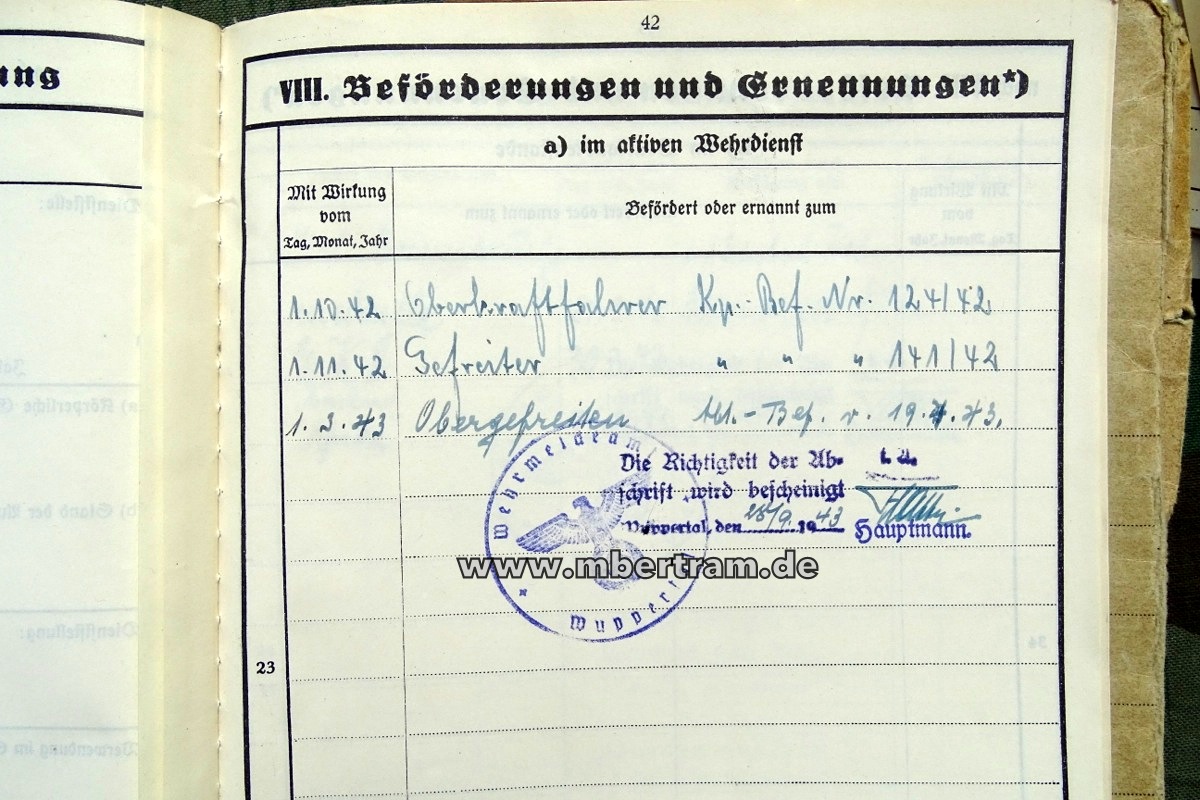 42
ung
VIII. Beförderungen und Ernennungen*)
a) im aktiven Wehrdienst
Mit Wirkung
vom
Tag, Monat, Jahr
Befördert oder ernannt zum
1.10.42 Oberkraftfahrer Kp.-Bef. Nr. 124/42
1.11.42 Gefreiter " " " 141/42
1.3.43 Obergefreiten Abt.-Bef. v. 19.4.43.
Wehrmeldeamt
Wuppertal
Die Richtigkeit der Ab-
schrift wird bescheinigt
Wuppertal, den 28/9. 1943
Hauptmann.
www.mbertram.de
23